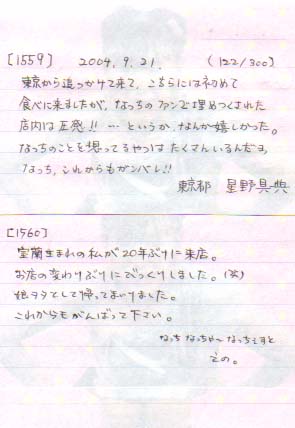 [1559] 2004.9.21. (122/300)
東京から追っかけて来て、こちらには初めて
食べに来ましたが、なっちのファンで埋めつくされた
店内は圧発!! … というか、なんか嬉しかった。
なっちのことを想ってるやつは たくさんいるんだョ
なっち、これからもガンバレ!!
東京都 星野具典
[1560]
室蘭生まれの私が20年ぶりに来店。
お店の変わりぶりにびっくりしました。(笑)
娘ヲタとして帰ってまいりました。
これからもがんばって下さい。
なっち なっちゃ〜 なっちですと
えの。